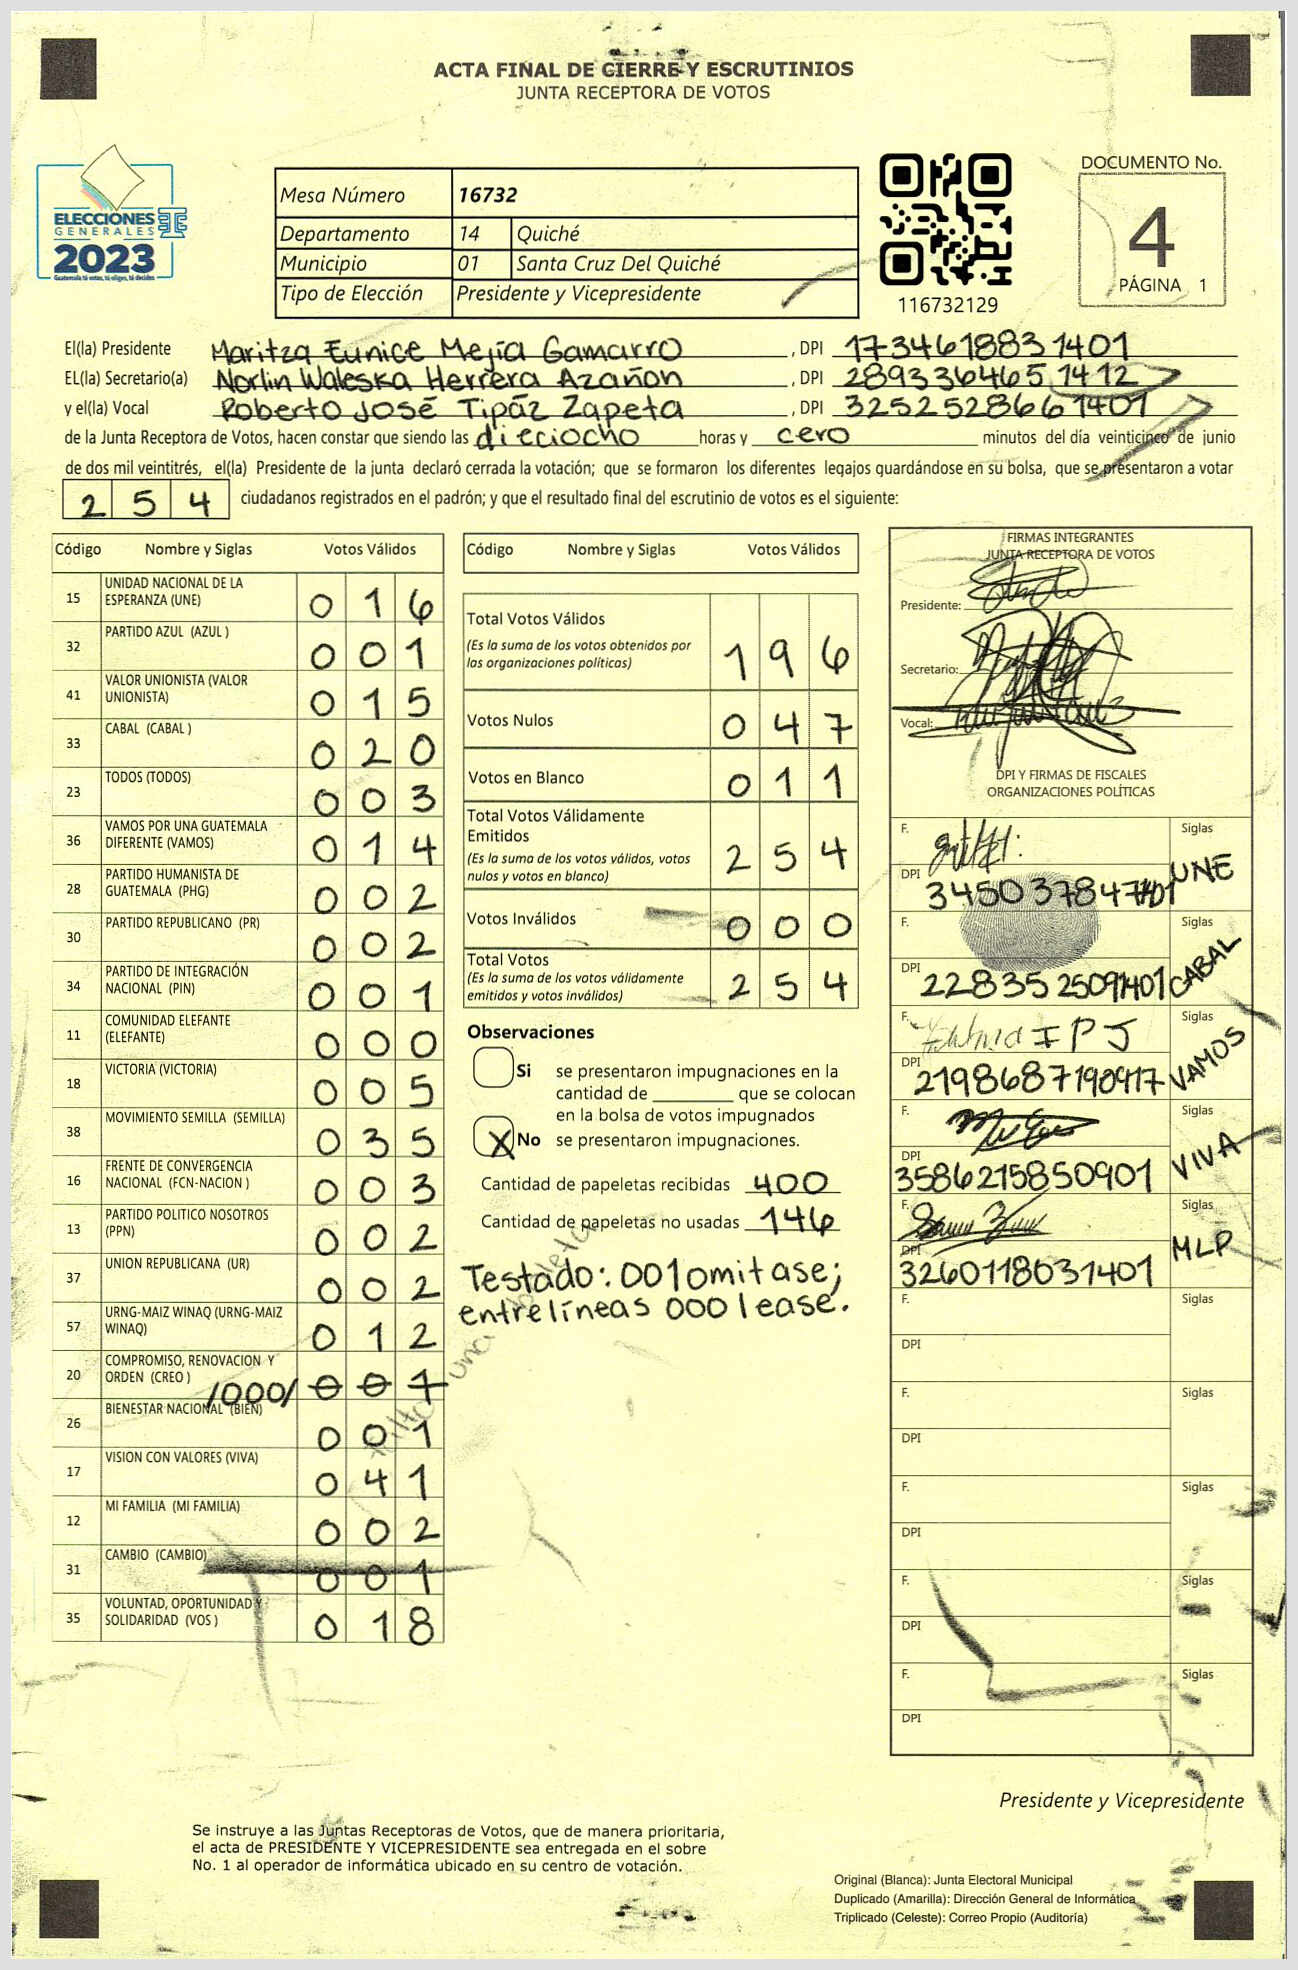 ACTA FINAL DE CIERRE Y ESCRUTINIOS
JUNTA RECEPTORA DE VOTOS
ELECCIONES
GENERALES
2023
Guatemala tú votas, tú eliges, tú decides
Mesa Número 16732
Departamento 14 Quiché
Municipio 01 Santa Cruz Del Quiché
Tipo de Elección Presidente y Vicepresidente
116732129
DOCUMENTO No.
4
PÁGINA 1
El(la) Presidente Maritza Eunice Mejía Gamarro , DPI 1734618831401
EL(la) Secretario(a) Norlin Waleska Herrera Azañon , DPI 2893364651412
y el(la) Vocal Roberto José Tipáz Zapeta , DPI 3252528661401
de la Junta Receptora de Votos, hacen constar que siendo las dieciocho horas y cero minutos del día veinticinco de junio
de dos mil veintitrés, el(la) Presidente de la junta declaró cerrada la votación; que se formaron los diferentes legajos guardándose en su bolsa, que se presentaron a votar
254 ciudadanos registrados en el padrón; y que el resultado final del escrutinio de votos es el siguiente:
Código Nombre y Siglas Votos Válidos
15 UNIDAD NACIONAL DE LA ESPERANZA (UNE) 016
32 PARTIDO AZUL (AZUL ) 001
41 VALOR UNIONISTA (VALOR UNIONISTA) 015
33 CABAL (CABAL ) 020
23 TODOS (TODOS) 003
36 VAMOS POR UNA GUATEMALA DIFERENTE (VAMOS) 014
28 PARTIDO HUMANISTA DE GUATEMALA (PHG) 002
30 PARTIDO REPUBLICANO (PR) 002
34 PARTIDO DE INTEGRACIÓN NACIONAL (PIN) 001
11 COMUNIDAD ELEFANTE (ELEFANTE) 000
18 VICTORIA (VICTORIA) 005
38 MOVIMIENTO SEMILLA (SEMILLA) 035
16 FRENTE DE CONVERGENCIA NACIONAL (FCN-NACION ) 003
13 PARTIDO POLITICO NOSOTROS (PPN) 002
37 UNION REPUBLICANA (UR) 002
57 URNG-MAIZ WINAQ (URNG-MAIZ WINAQ) 012
20 COMPROMISO, RENOVACION Y ORDEN (CREO ) /000/ 001
26 BIENESTAR NACIONAL (BIEN) 001
17 VISION CON VALORES (VIVA) 041
12 MI FAMILIA (MI FAMILIA) 002
31 CAMBIO (CAMBIO) 001
35 VOLUNTAD, OPORTUNIDAD Y SOLIDARIDAD (VOS ) 018
Código Nombre y Siglas Votos Válidos
Total Votos Válidos 196
(Es la suma de los votos obtenidos por
las organizaciones políticas)
Votos Nulos 047
Votos en Blanco 011
Total Votos Válidamente
Emitidos 254
(Es la suma de los votos válidos, votos
nulos y votos en blanco)
Votos Inválidos 000
Total Votos 254
(Es la suma de los votos válidamente
emitidos y votos inválidos)
Observaciones
Si se presentaron impugnaciones en la
cantidad de ________ que se colocan
en la bolsa de votos impugnados
X No se presentaron impugnaciones.
Cantidad de papeletas recibidas 400
Cantidad de papeletas no usadas 146
Testado: 001 omitase;
entrelíneas 000 lease.
FIRMAS INTEGRANTES
JUNTA RECEPTORA DE VOTOS
Presidente:
Secretario:
Vocal:
DPI Y FIRMAS DE FISCALES
ORGANIZACIONES POLÍTICAS
F. Siglas
DPI 3450378471401 UNE
F. Siglas
DPI 2283525091401 CABAL
F. IPJ Siglas
DPI 2198687190917 VAMOS
F. Siglas
DPI 3586215850901 VIVA
F.
DPI 3260118031401 MLP
F. Siglas
DPI
F. Siglas
DPI
F. Siglas
DPI
F. Siglas
DPI
F. Siglas
DPI
Presidente y Vicepresidente
Se instruye a las Juntas Receptoras de Votos, que de manera prioritaria,
el acta de PRESIDENTE Y VICEPRESIDENTE sea entregada en el sobre
No. 1 al operador de informática ubicado en su centro de votación.
Original (Blanca): Junta Electoral Municipal
Duplicado (Amarilla): Dirección General de Informática
Triplicado (Celeste): Correo Propio (Auditoría)